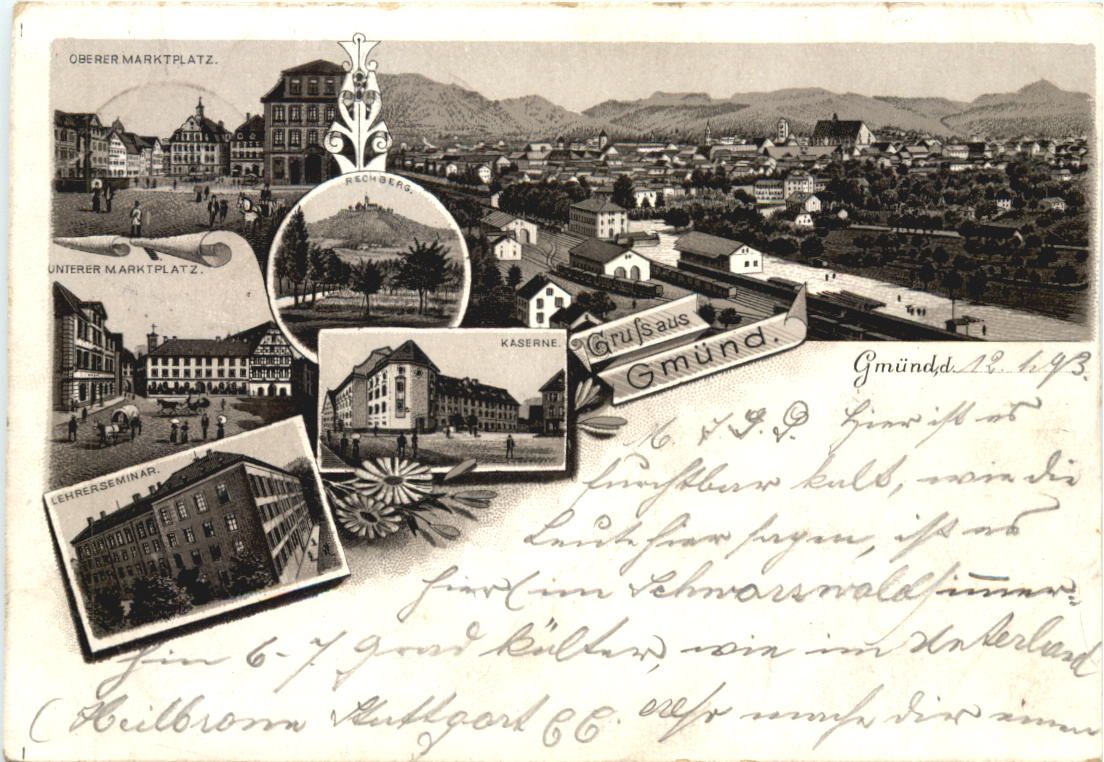 OBERER MARKTPLATZ.
RECHBERG.
UNTERER MARKTPLATZ.
KASERNE.
LEHRERSEMINAR.
Gruſs aus
Gmünd.
Gmünd, d. 12. 1. 93.
Hier ist es
furchtbar kalt, wie die
Leute hier sagen, ist es
hier (im Schwarzwald) immer-
hin 6-7 Grad kälter, wie im Unterland
(Heilbronn Stuttgart mache dir einen